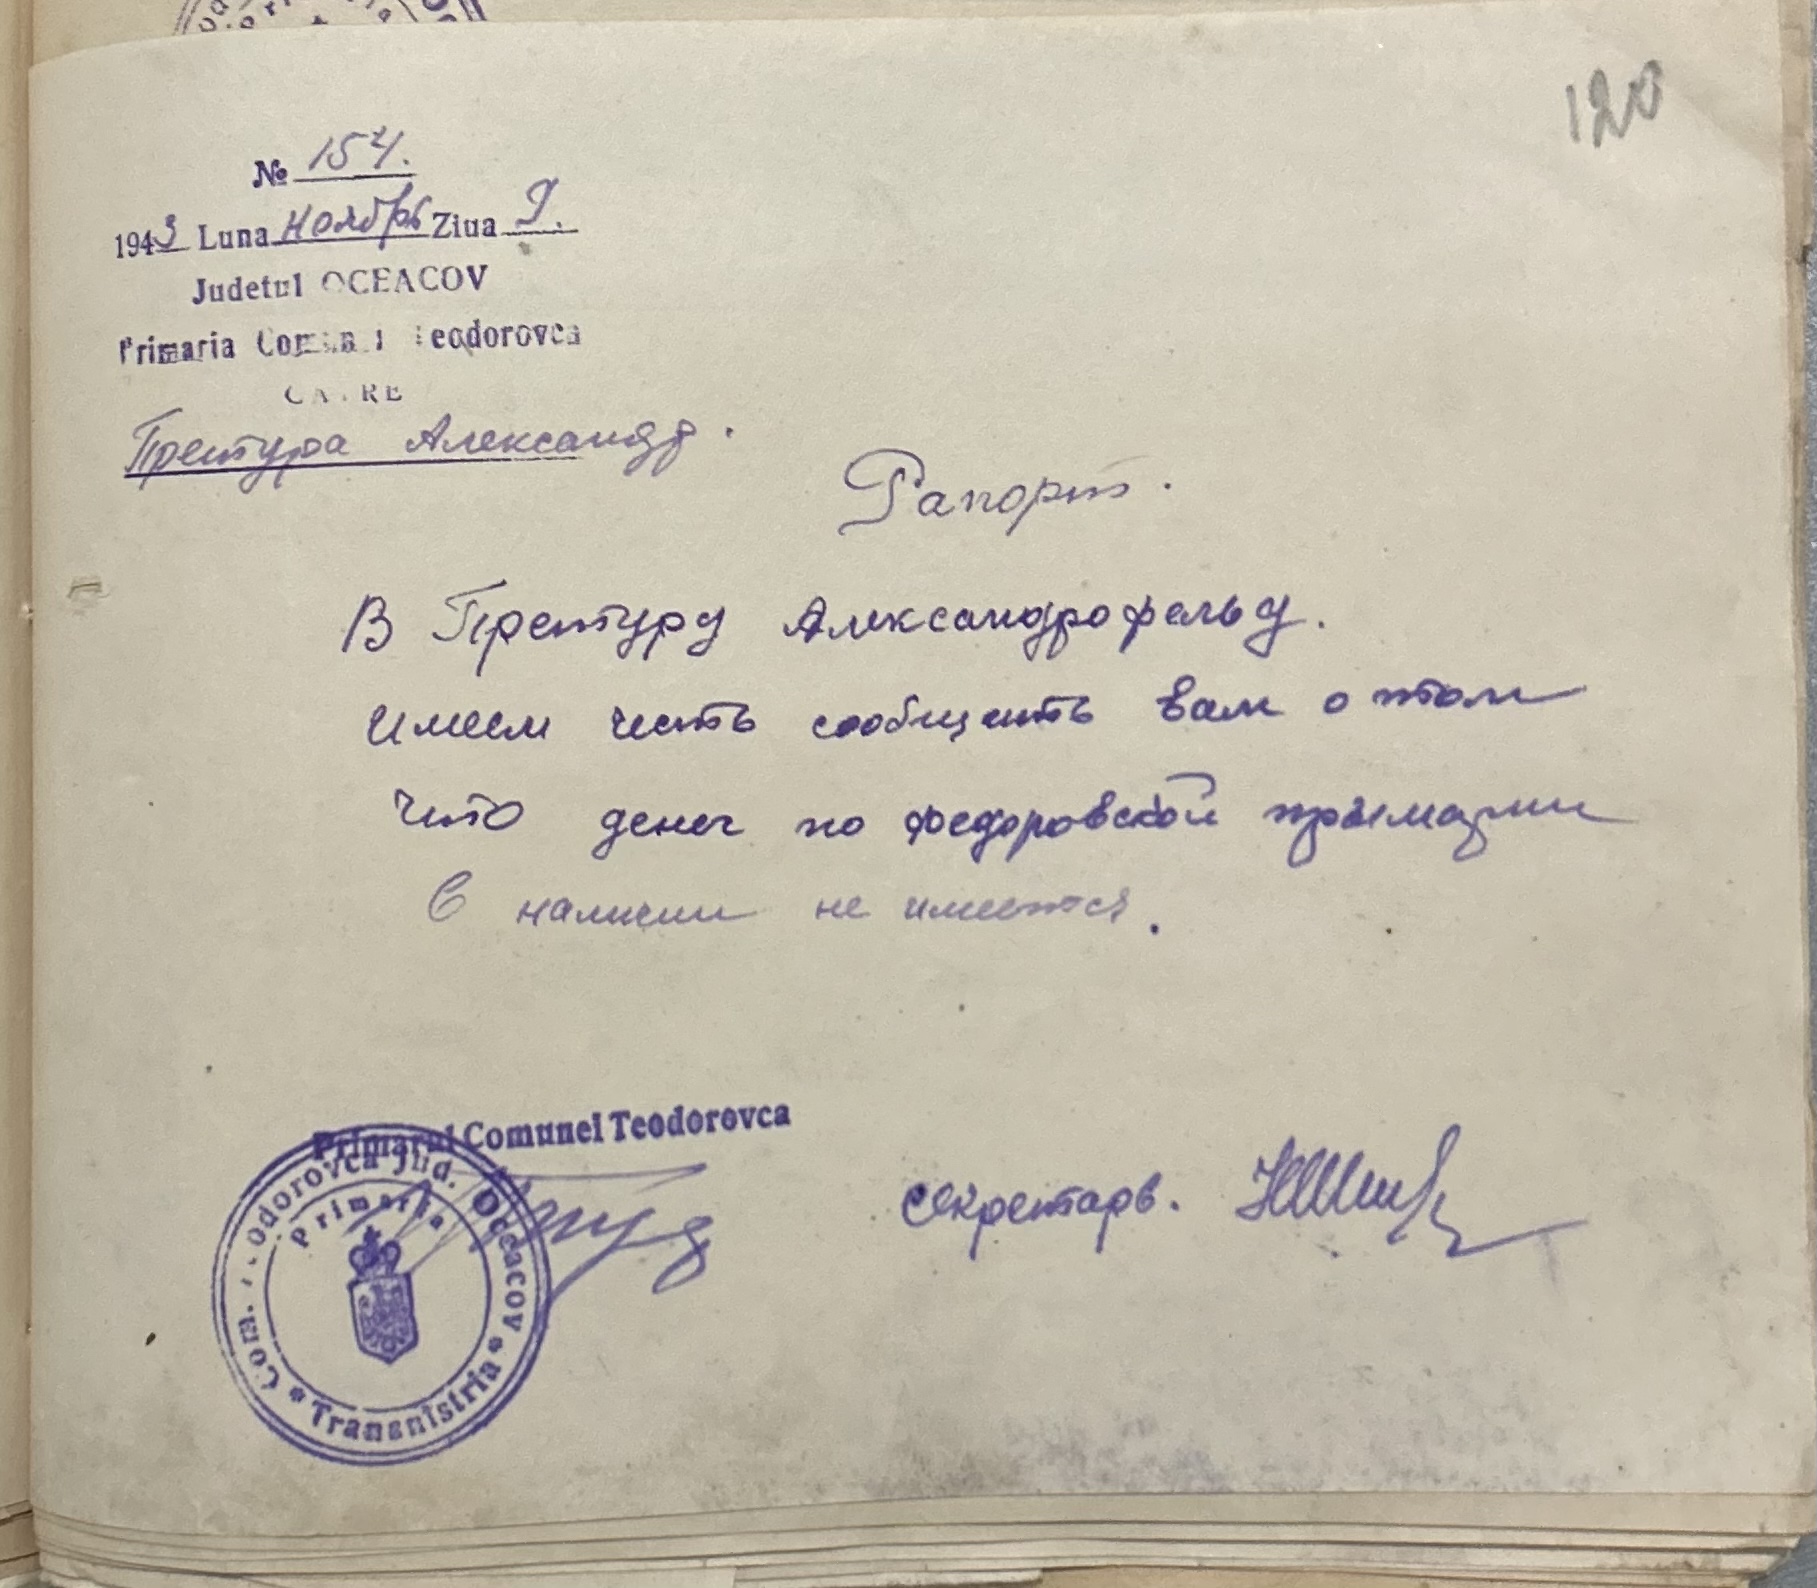 120
№ 154.
1943 Luna ноябрь Ziua 9.
Judetul OCEACOV
Primaria Comunei Teodorovca
CATRE
Претура Александр.
Рапорт.
В Претуру Александрофельд.
имеем честь сообщить вам о том
что денег по федоровской примарии
в наличии не имеется.
Primarul Comunei Teodorovca
Com. Teodorovca Jud. Oceacov
Primaria
Transnistria
секретарь.